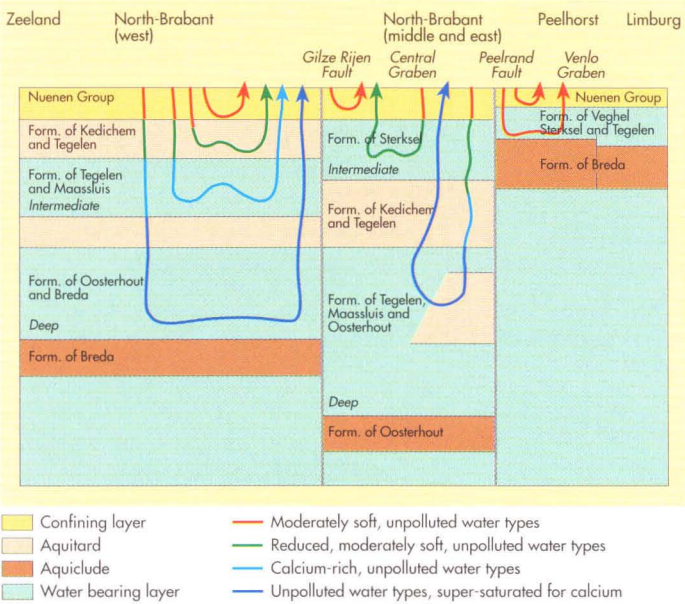 Zeeland
North-Brabant
(west)
North-Brabant
(middle and east)
Peelhorst
Limburg
Gilze Rijen
Fault
Central
Graben
Peelrand
Fault
Venlo
Graben
Nuenen Group
Form. of Kedichem
and Tegelen
Form. of Tegelen
and Maassluis
Intermediate
Form. of Oosterhout
and Breda
Deep
Form. of Breda
Form. of Sterksel
Intermediate
Form. of Kedichem
and Tegelen
Form. of Tegelen,
Maassluis and
Oosterhout
Deep
Form. of Oosterhout
Nuenen Group
Form. of Veghel
Sterksel and Tegelen
Form. of Breda
Confining layer
Aquitard
Aquiclude
Water bearing layer
Moderately soft, unpolluted water types
Reduced, moderately soft, unpolluted water types
Calcium-rich, unpolluted water types
Unpolluted water types, super-saturated for calcium